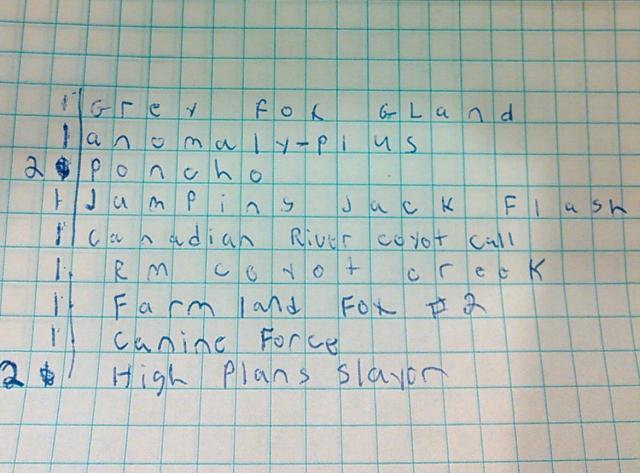 1 Grey Fox GLand
1 anomaly-plus
2 Poncho
1 Jumping Jack Flash
1 Canadian River coyot call
1 RM coyot creek
1 Farm land Fox #2
1 Canine Force
2 High Plans Slayor